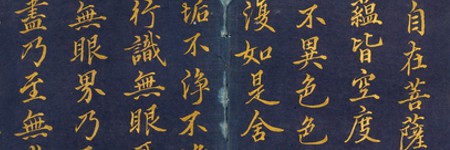 自在菩薩
蘊皆空度
不異色色
復如是舍
垢不淨不
行識無眼
無眼界乃
盡乃至無